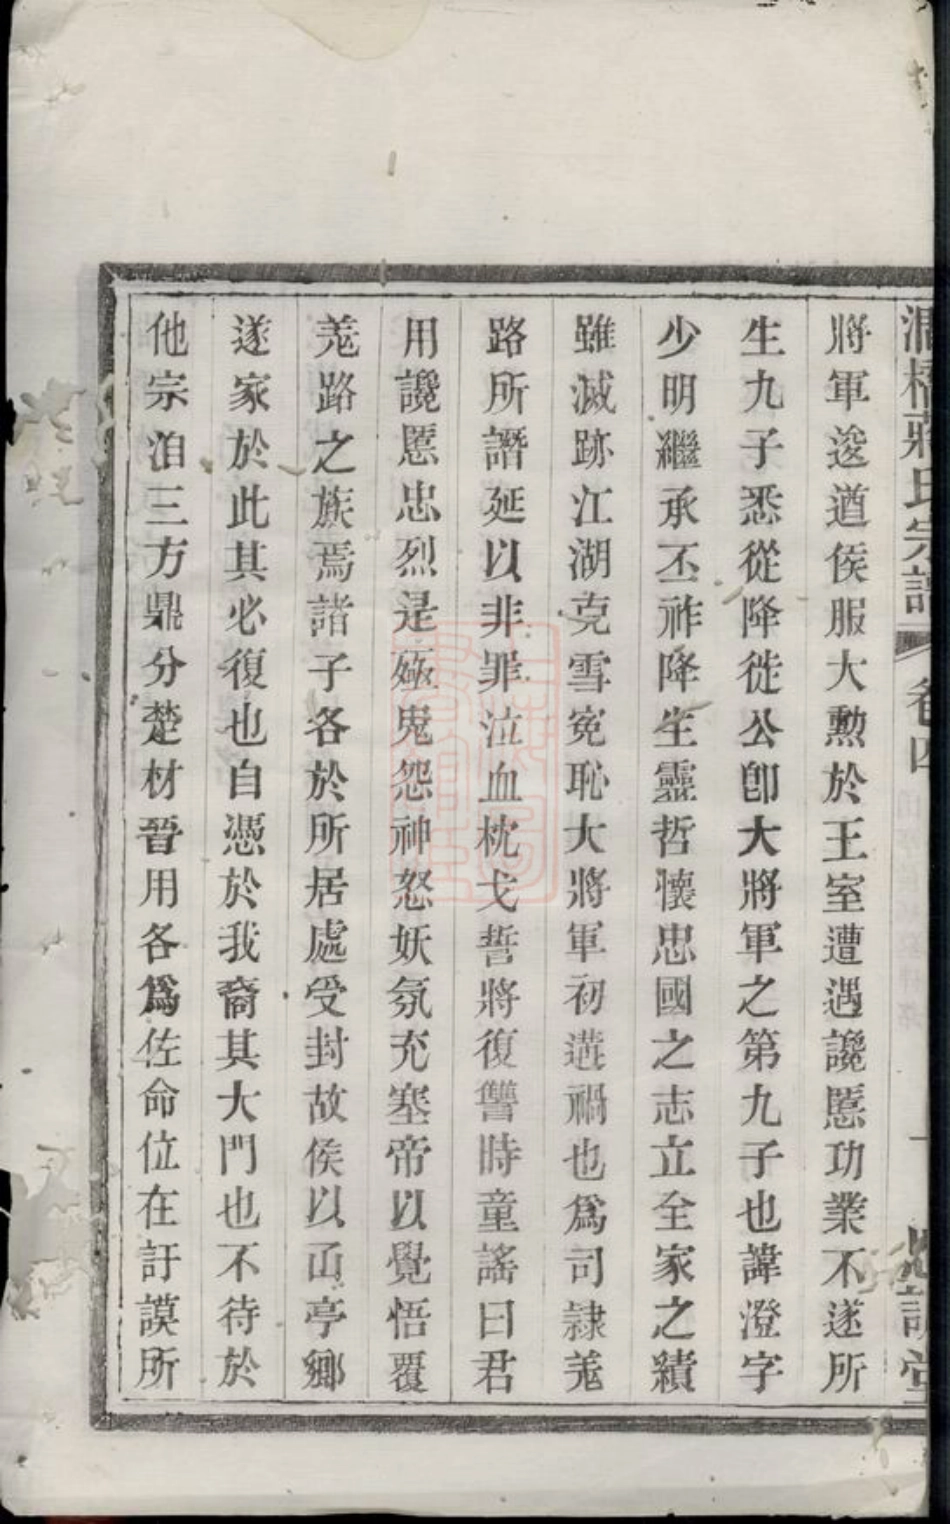 橋蔣氏宗譜 卷四
將軍逡遒侯服大勲於王室遭遇讒慝功業不遂所
生九子悉從降徙公卽大將軍之第九子也諱澄字
少明繼承丕祚降生靈哲懷忠國之志立至家之績
雖滅跡江湖克雪寃恥大將軍初遘禍也爲司隷羗
路所譖延以非罪泣血枕戈誓將復讐時童謠曰君
用讒慝忠烈是殛鬼怨神怒妖氛充塞帝以覺悟覆
羗路之族焉諸子各於所居處受封故侯以凾亭鄉
遂家於此其必復也自憑於我裔其大門也不待於
他宗洎三方鼎分楚材晉用各爲佐命位在訏謨所